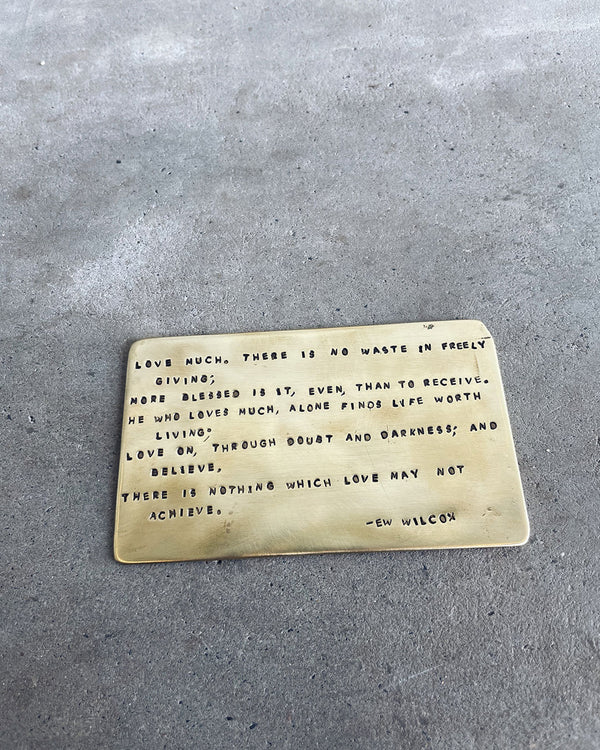 LOVE MUCH. THERE IS NO WASTE IN FREELY
GIVING;
MORE BLESSED IS IT, EVEN, THAN TO RECEIVE.
HE WHO LOVES MUCH, ALONE FINDS LIFE WORTH
LIVING.
LOVE ON, THROUGH DOUBT AND DARKNESS; AND
BELIEVE,
THERE IS NOTHING WHICH LOVE MAY NOT
ACHIEVE.
-EW WILCOX